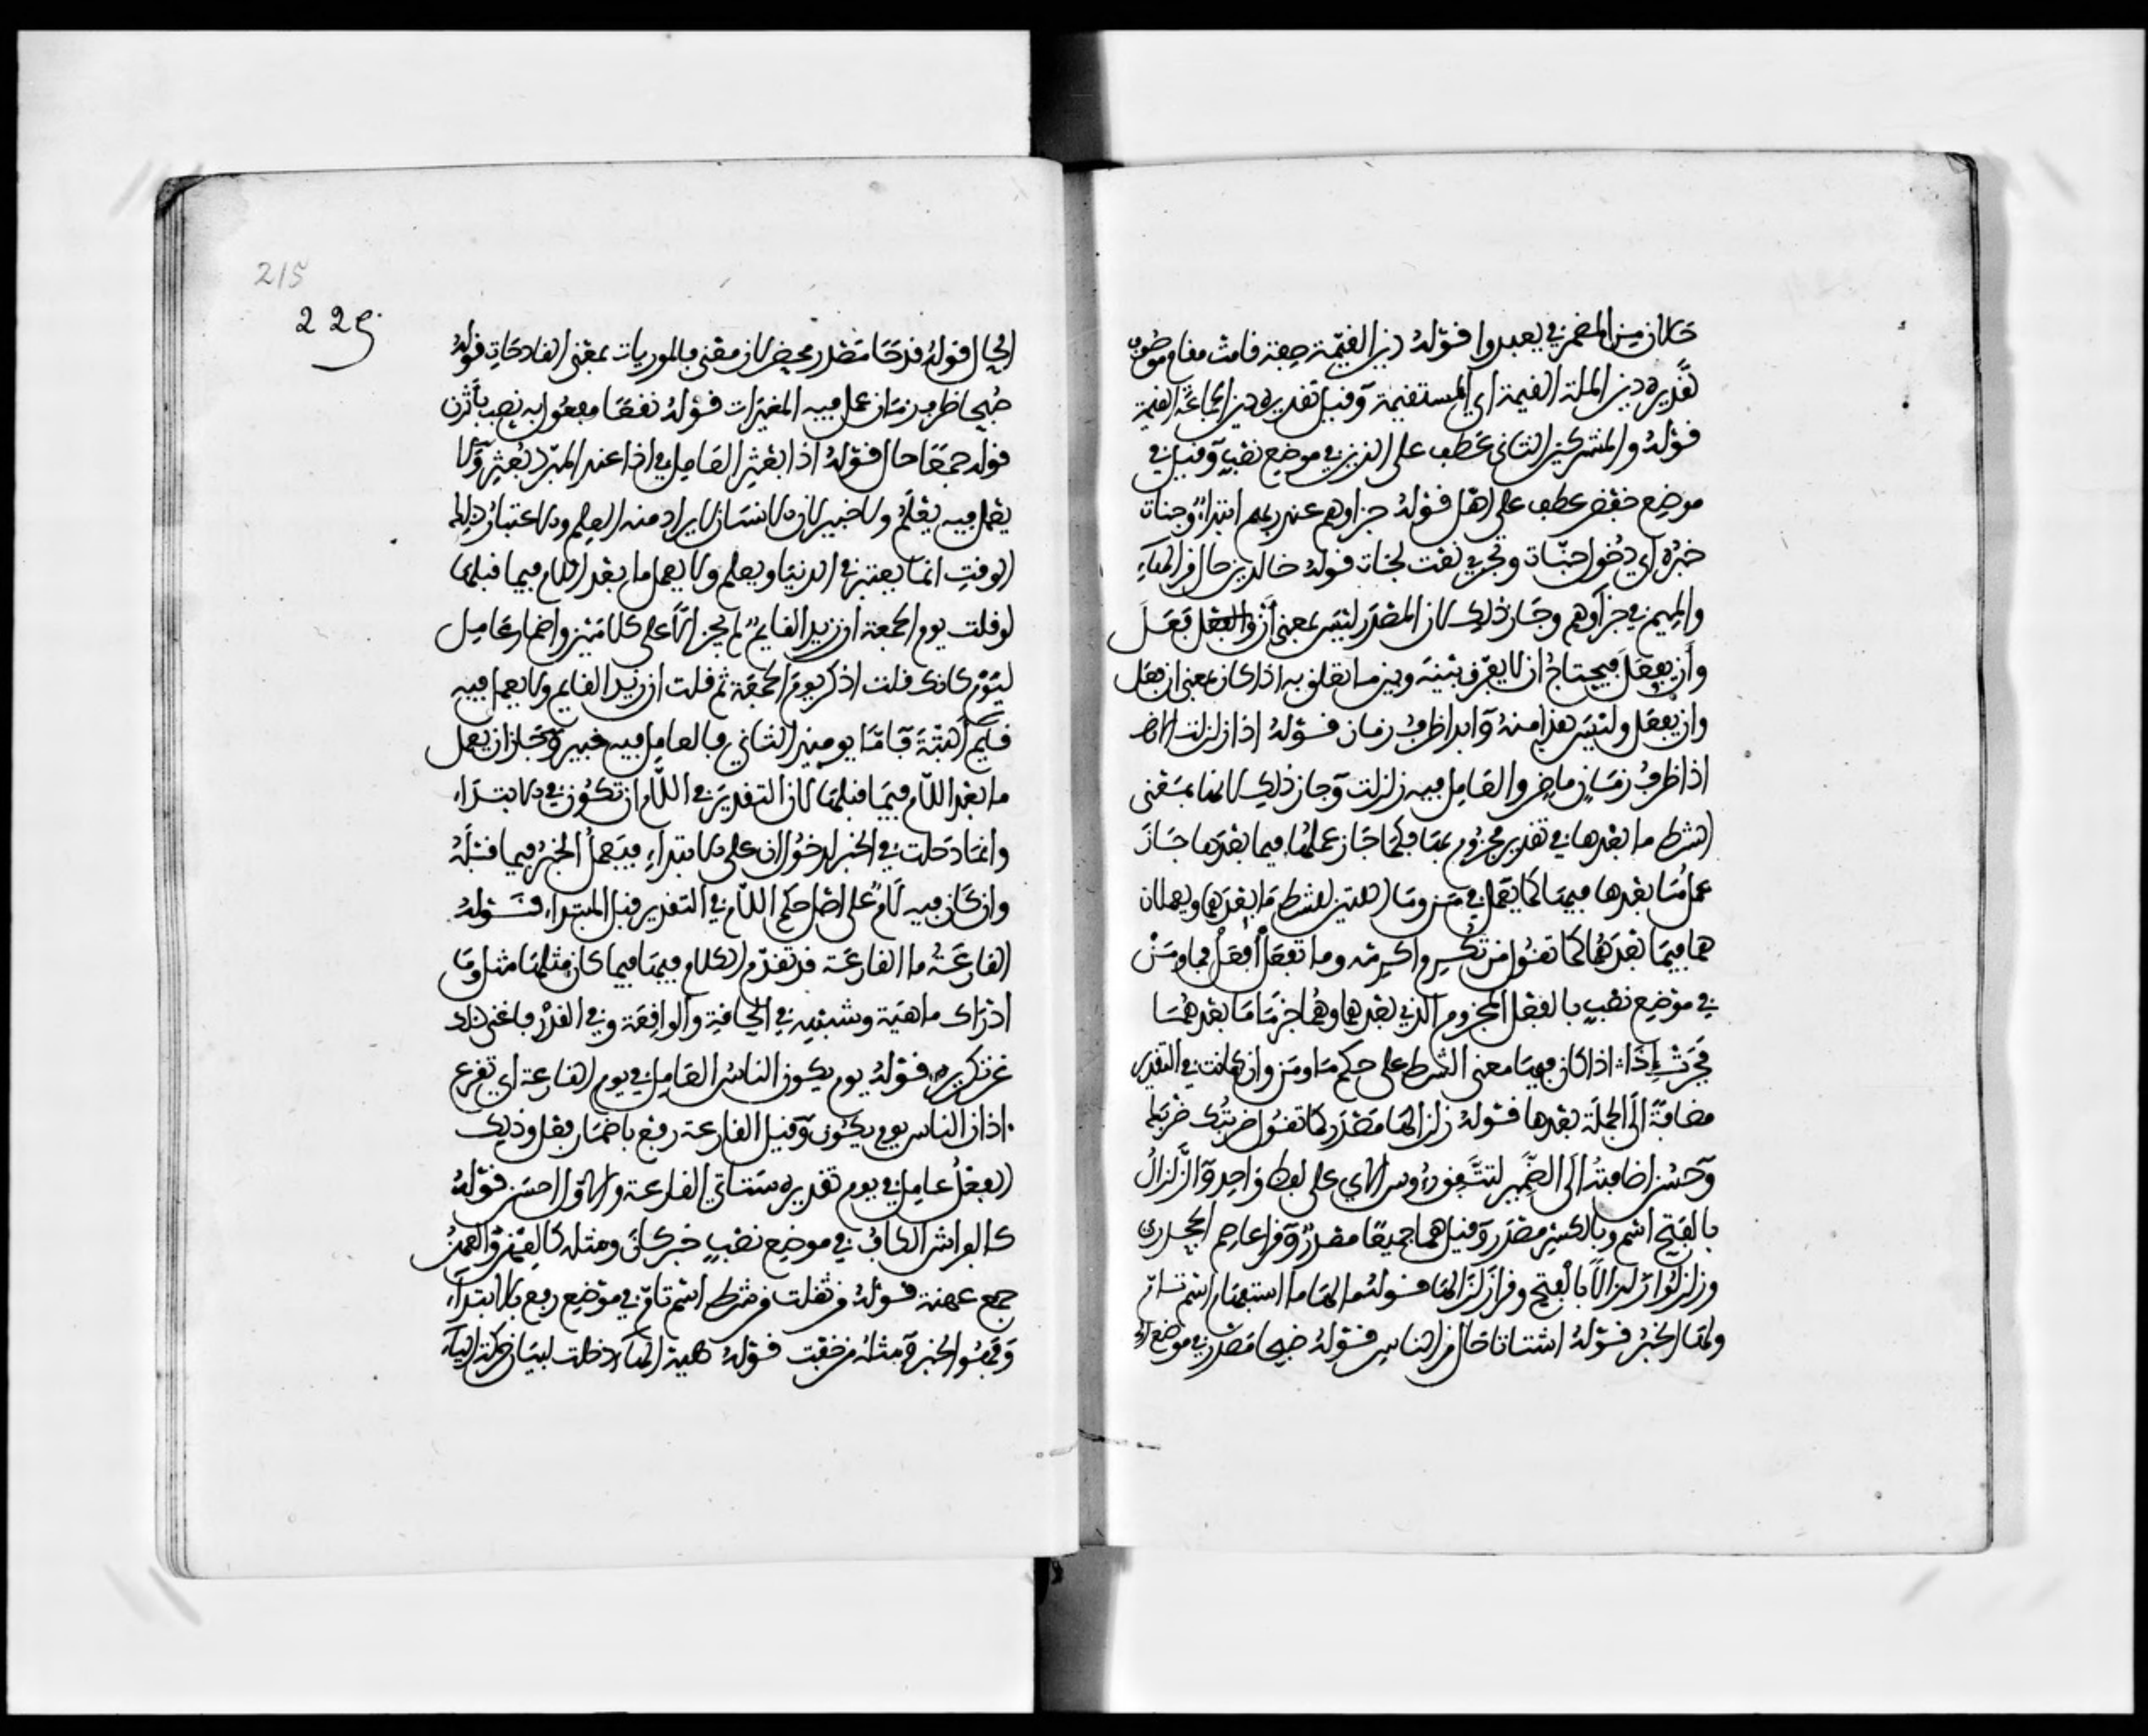 حالان من المضمر في يعبدوا قوله دين القيمة صفة قامت مقام موصوف
تقديره دين الملة القيمة اي المستقيمة وقيل تقديره دين الجماعة القيمة
قوله والمشركين الثاني عطف على الذين في موضع نصب وقيل في
موضع خفض عطف على اهل قوله جزاوهم عند ربهم ابتداء وجنات
خبره اي دخول جنات وتجري نعت لجنات قوله خالدين حال من الهاء
والميم في جزآوهم وجاز ذلك لان المصدر ليس بمعنى أن والفعل فعل
وأن يفعل فيحتاج ان لا يفرق بينه وبين ما تعلق به اذا كان بمعنى ان فعل
وان يفعل وليس هذا منه وابدا ظرف زمان قوله اذا زلزلت الارض
اذا ظرف زمان ماض والعامل فيه زلزلت وجاز ذلك لانها بمعنى
الشرط ما بعدها في تقدير مجزوم بها فكما جاز عملها فيما بعدها جاز
عمل ما بعدها فيها كما يعمل في من وما اللتين للشرط ما بعدهما ويعملان
هما فيما بعدهما كما تقول من تكرم اكرمه وما تفعل أفعل فما ومن
في موضع نصب بالفعل المجزوم الذي بعدهما وهما جزما ما بعدهما
فجرت إذا اذا كان فيها معنى الشرط على حكم ما ومن وان كانت في التقدير
مضافة الى الجملة بعدها قوله زلزالها مصدر كما تقول ضربتك ضربك
وحسن اضافته الى الضمير لتتفق روس الاي على لفظ واحد والزلزال
بالفتح اسم وبالكسر مصدر وقيل هما جميعا مصدر وقرا عاصم الجحدري
وزلزلوا زلزالا بالفتح وقرا زلزالها قوله ما لها ما استفهام اسم تام
ولها الخبر قوله اشتاتا حال من الناس قوله ضبحا مصدر في موضع
215
225
الحال قوله قدحا مصدر محض لان معنى فالموريات بمعنى القادحات قوله
صبحا ظرف زمان عمل فيه المغيرات قوله نقعا مفعول به نصب باثرن
قوله جمعا حال قوله اذا بعثر العامل في اذا عند المبرد بعثر ولا
يعمل فيه يعلم ولا خبير لان الانسان لا يراد منه العلم والاعتبار ذلك
الوقت انما يعتبر في الدنيا ويعلم ولا يعمل ما بعد ان فيما قبلها
لو قلت يوم الجمعة ان زيدا لقايم لم يجز الا على كلامين واضمار عامل
ليوم كانك قلت اذكر يوم الجمعة ثم قلت ان زيدا لقايم ولا يعمل فيه
قايم البتة فاما يوميذ الثاني فالعامل فيه خبير وجاز ان يعمل
ما بعد اللام فيما قبلها لان التقدير في اللام ان تكون في الابتداء
وانما دخلت في الخبر لدخول ان على الابتداء فيعمل الخبر فيما قبله
وان كان فيه لام على اصل حكم اللام في التقدير قبل المبتدا قوله
القارعة ما القارعة قد تقدم الكلام فيها فيما كان مثلها مثل وما
ادراك ما هية وشبهه في الحاقة والواقعة وفي القدر فاغنى ذلك
عن تكريره قوله يوم يكون الناس العامل في يوم القارعة اي تقرع
اذان الناس يوم يكون وقيل القارعة رفع باضمار فعل وذلك
الفعل عامل في يوم تقديره ستاتي القارعة والاول احسن قوله
كالفراش الكاف في موضع نصب خبر كان ومثله كالعهن والعهن
جمع عهنة قوله من ثقلت من شرط اسم تام في موضع رفع بالابتداء
وفهو الخبر ومثله من خفت قوله هيه الهاء دخلت لبيان حركة الياء